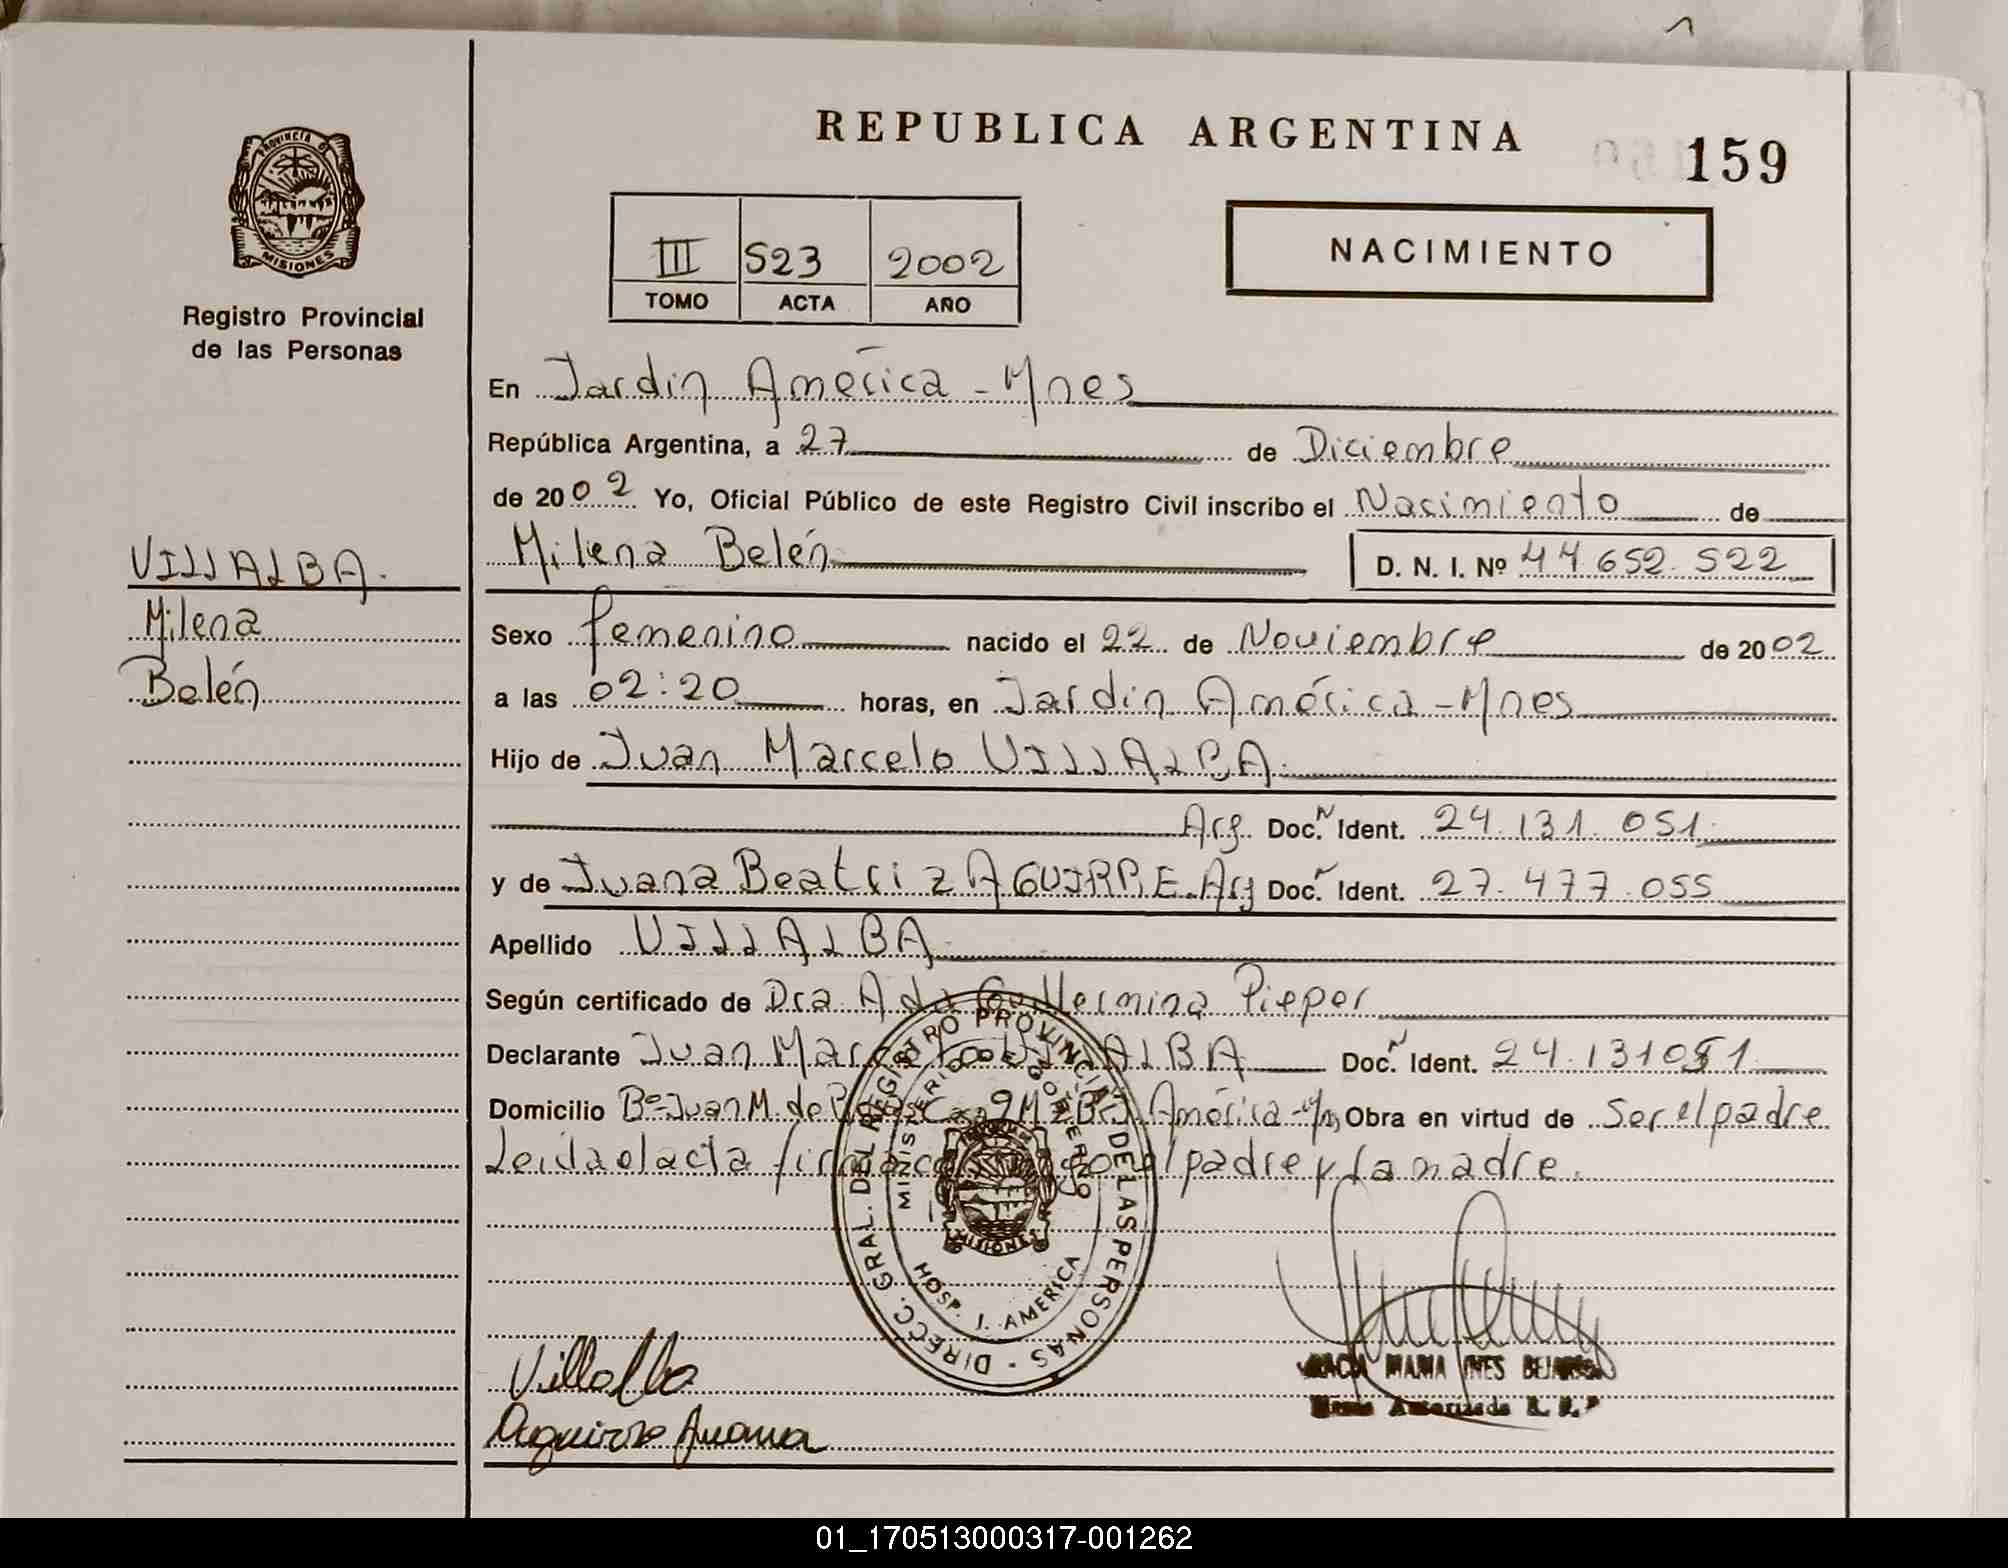 REPUBLICA ARGENTINA
159
PROVINCIA D MISIONES
Registro Provincial
de las Personas
III 523 2002
TOMO ACTA AÑO
NACIMIENTO
VILLALBA.
Milena
Belén
En Jardin América - Mnes
República Argentina, a 27 de Diciembre
de 2002 Yo, Oficial Público de este Registro Civil inscribo el Nacimiento de
Milena Belén D. N. I. Nº 44 652.522
Sexo femenino nacido el 22 de Noviembre de 2002
a las 02:20 horas, en Jardin América - Mnes
Hijo de Juan Marcelo VILLALBA.
Arg. Doc. Ident. 24.131.051
y de Juana Beatriz AGUIRRE Arg Doc. Ident. 27.477.055
Apellido VILLALBA
Según certificado de Dra Ada Guillermina Pieper
Declarante Juan Marcelo VILLALBA Doc. Ident. 24.131051
Domicilio Bº Juan M. de América - Mn, Obra en virtud de Ser el padre
Leida el acta padre y la madre.
DIRECC. GRAL. DEL REGISTRO PROVINCIAL DE LAS PERSONAS
MINISTERIO DE GOBIERNO
MISIONES
HOSP. J. AMERICA
Villalba
Aguirre Juana
MARIA INES
Autorizada R. P. P
01_170513000317-001262